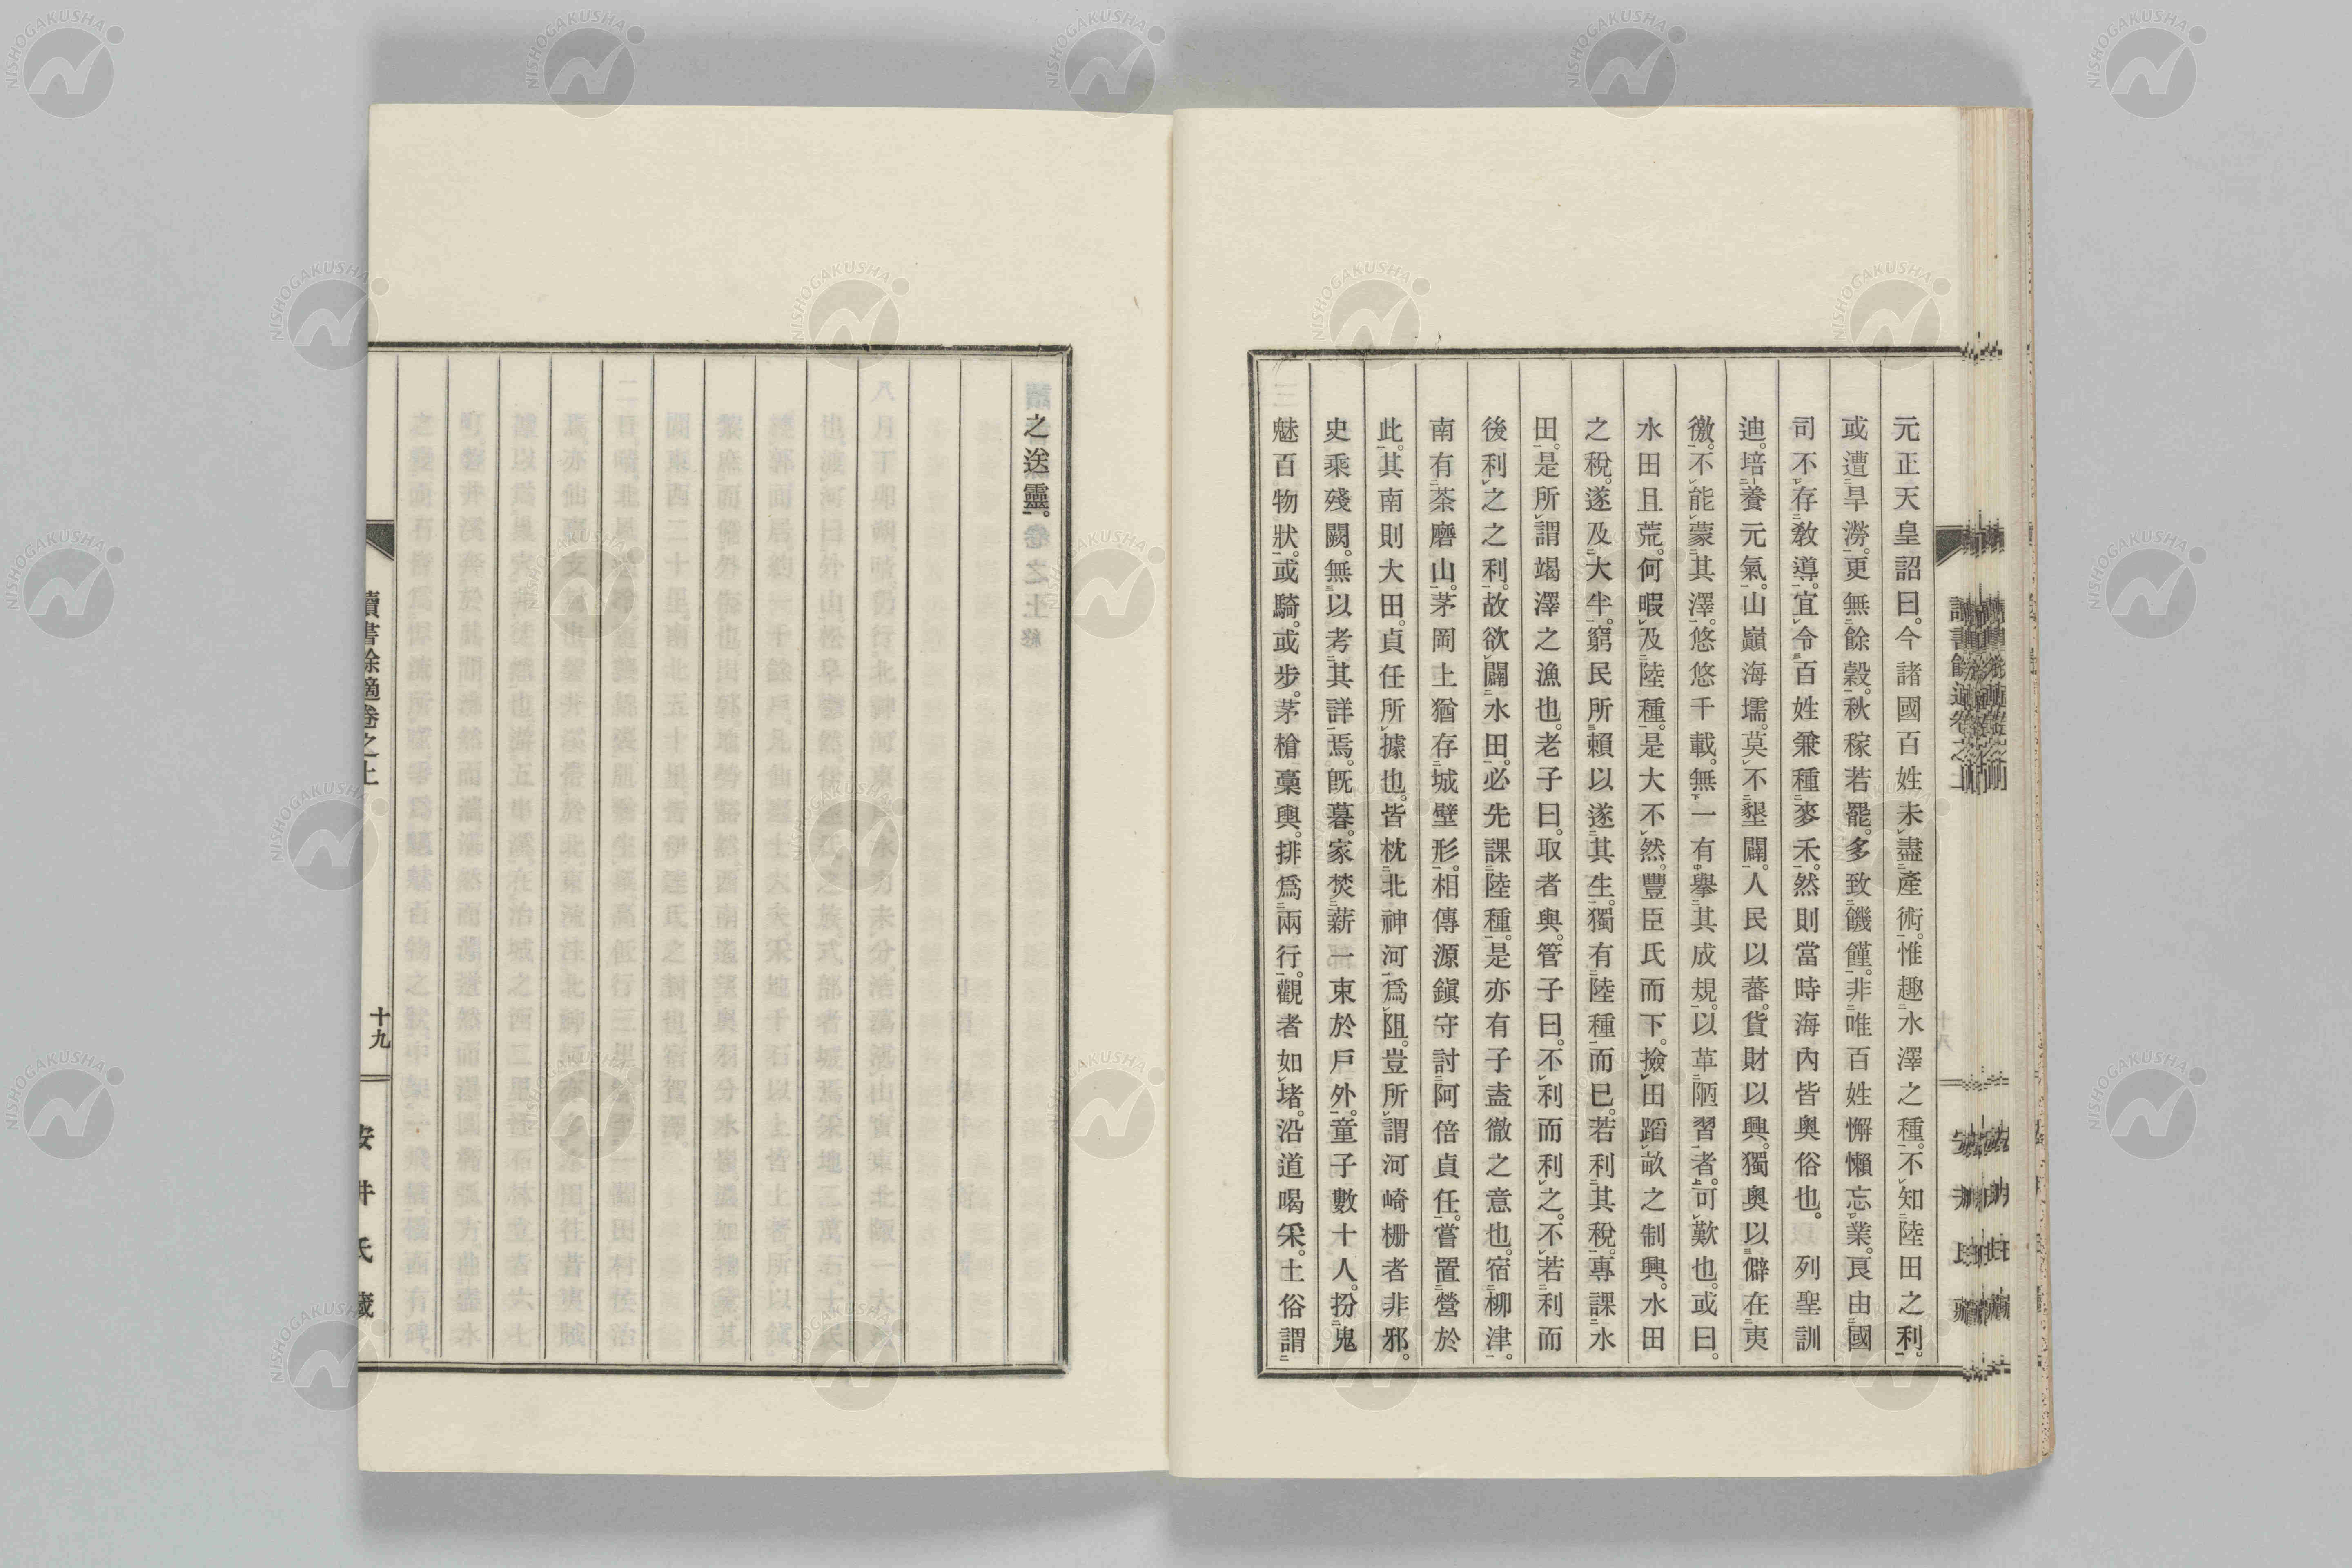 元正天皇詔曰。今諸國百姓未盡產術。惟趣水澤之種。不知陸田之利。
或遭旱澇。更無餘穀。秋稼若罷。多致饑饉。非唯百姓懈懶忘業。良由國
司不存教導。宜令百姓兼種麥禾。然則當時海內皆奧俗也。列聖訓
迪。培養元氣。山巓海壖。莫不墾闢。人民以蕃。貨財以興。獨奧以僻在夷
徼。不能蒙其澤。悠悠千載。無一有擧其成規。以革陋習者。可歎也。或曰。
水田且荒。何暇及陸種。是大不然。豐臣氏而下。撿田蹈畝之制興。水田
之稅。遂及大半。窮民所賴以遂其生。獨有陸種而已。若利其稅。專課水
田。是所謂竭澤之漁也。老子曰。取者與。管子曰。不利而利之。不若利而
後利之之利。故欲闢水田。必先課陸種。是亦有子盍徹之意也。宿柳津。
南有茶磨山。茅岡上猶存城壁形。相傳源鎭守討阿倍貞任。嘗置營於
此。其南則大田。貞任所據也。皆枕北神河爲阻。豈所謂河崎栅者非邪。
史乘殘闕。無以考其詳焉。旣暮。家焚薪一束於戶外。童子數十人。扮鬼
魅百物狀。或騎。或步。茅槍稾輿。排爲兩行。觀者如堵。沿道喝采。土俗謂
之送靈。
卷之上終
讀書餘適卷之上
十九
安井氏藏